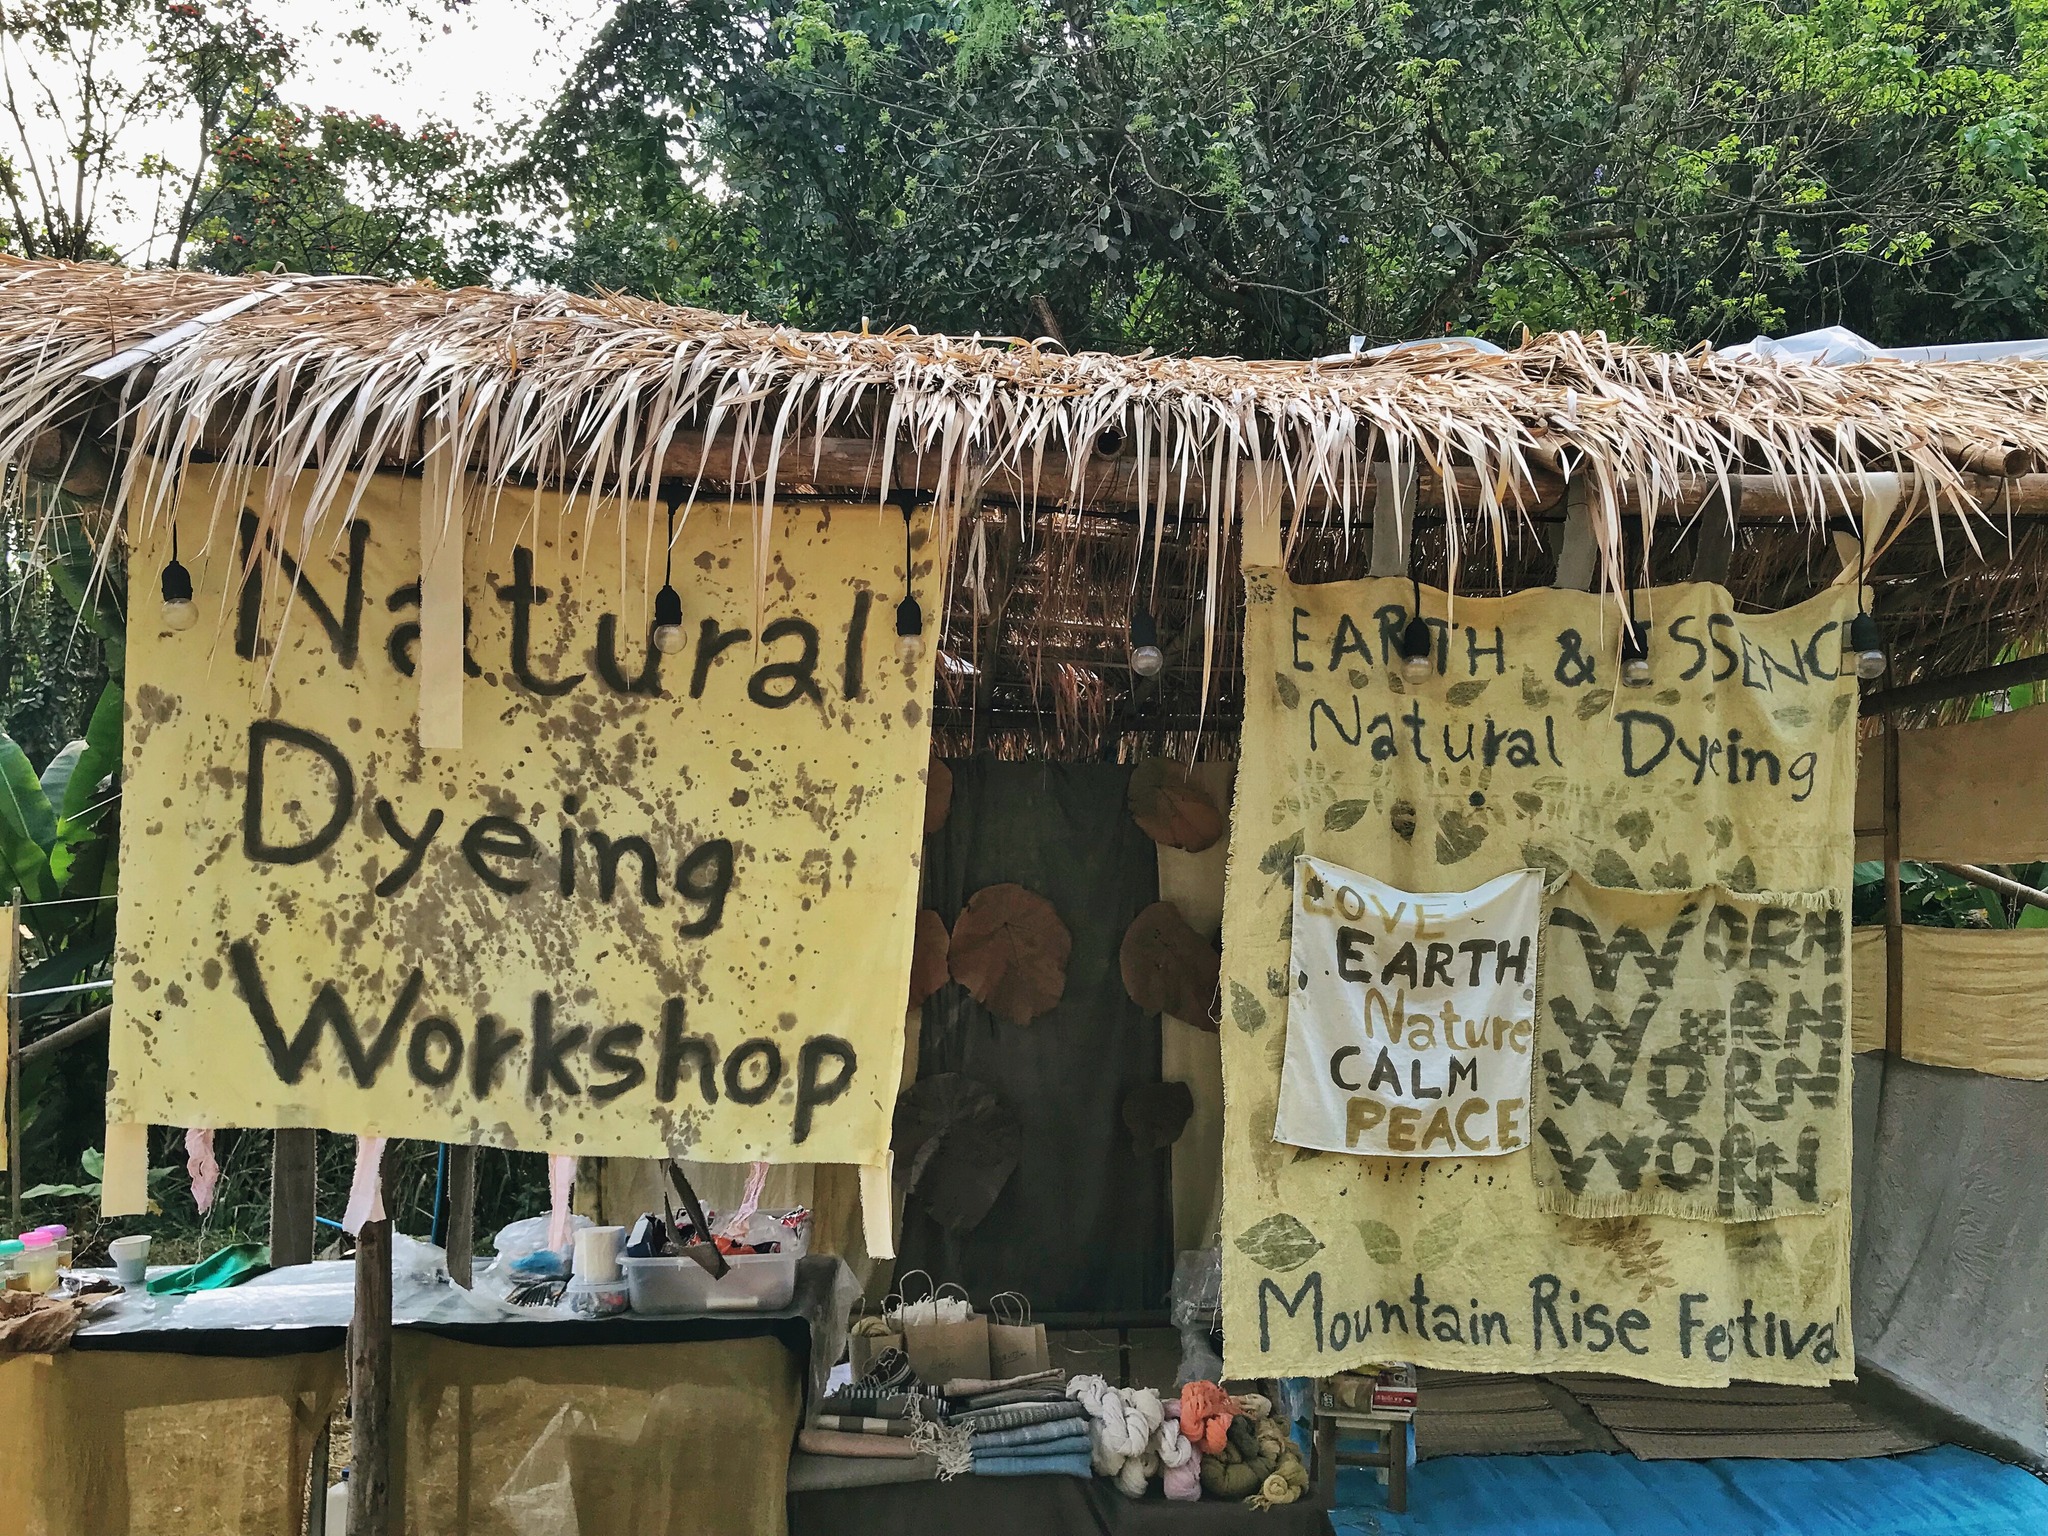 Natural
Dyeing
Workshop
EARTH & ESSENCE
Natural Dyeing
LOVE
EARTH
Nature
CALM
PEACE
WORN
WORN
WORN
WORN
Mountain Rise Festival